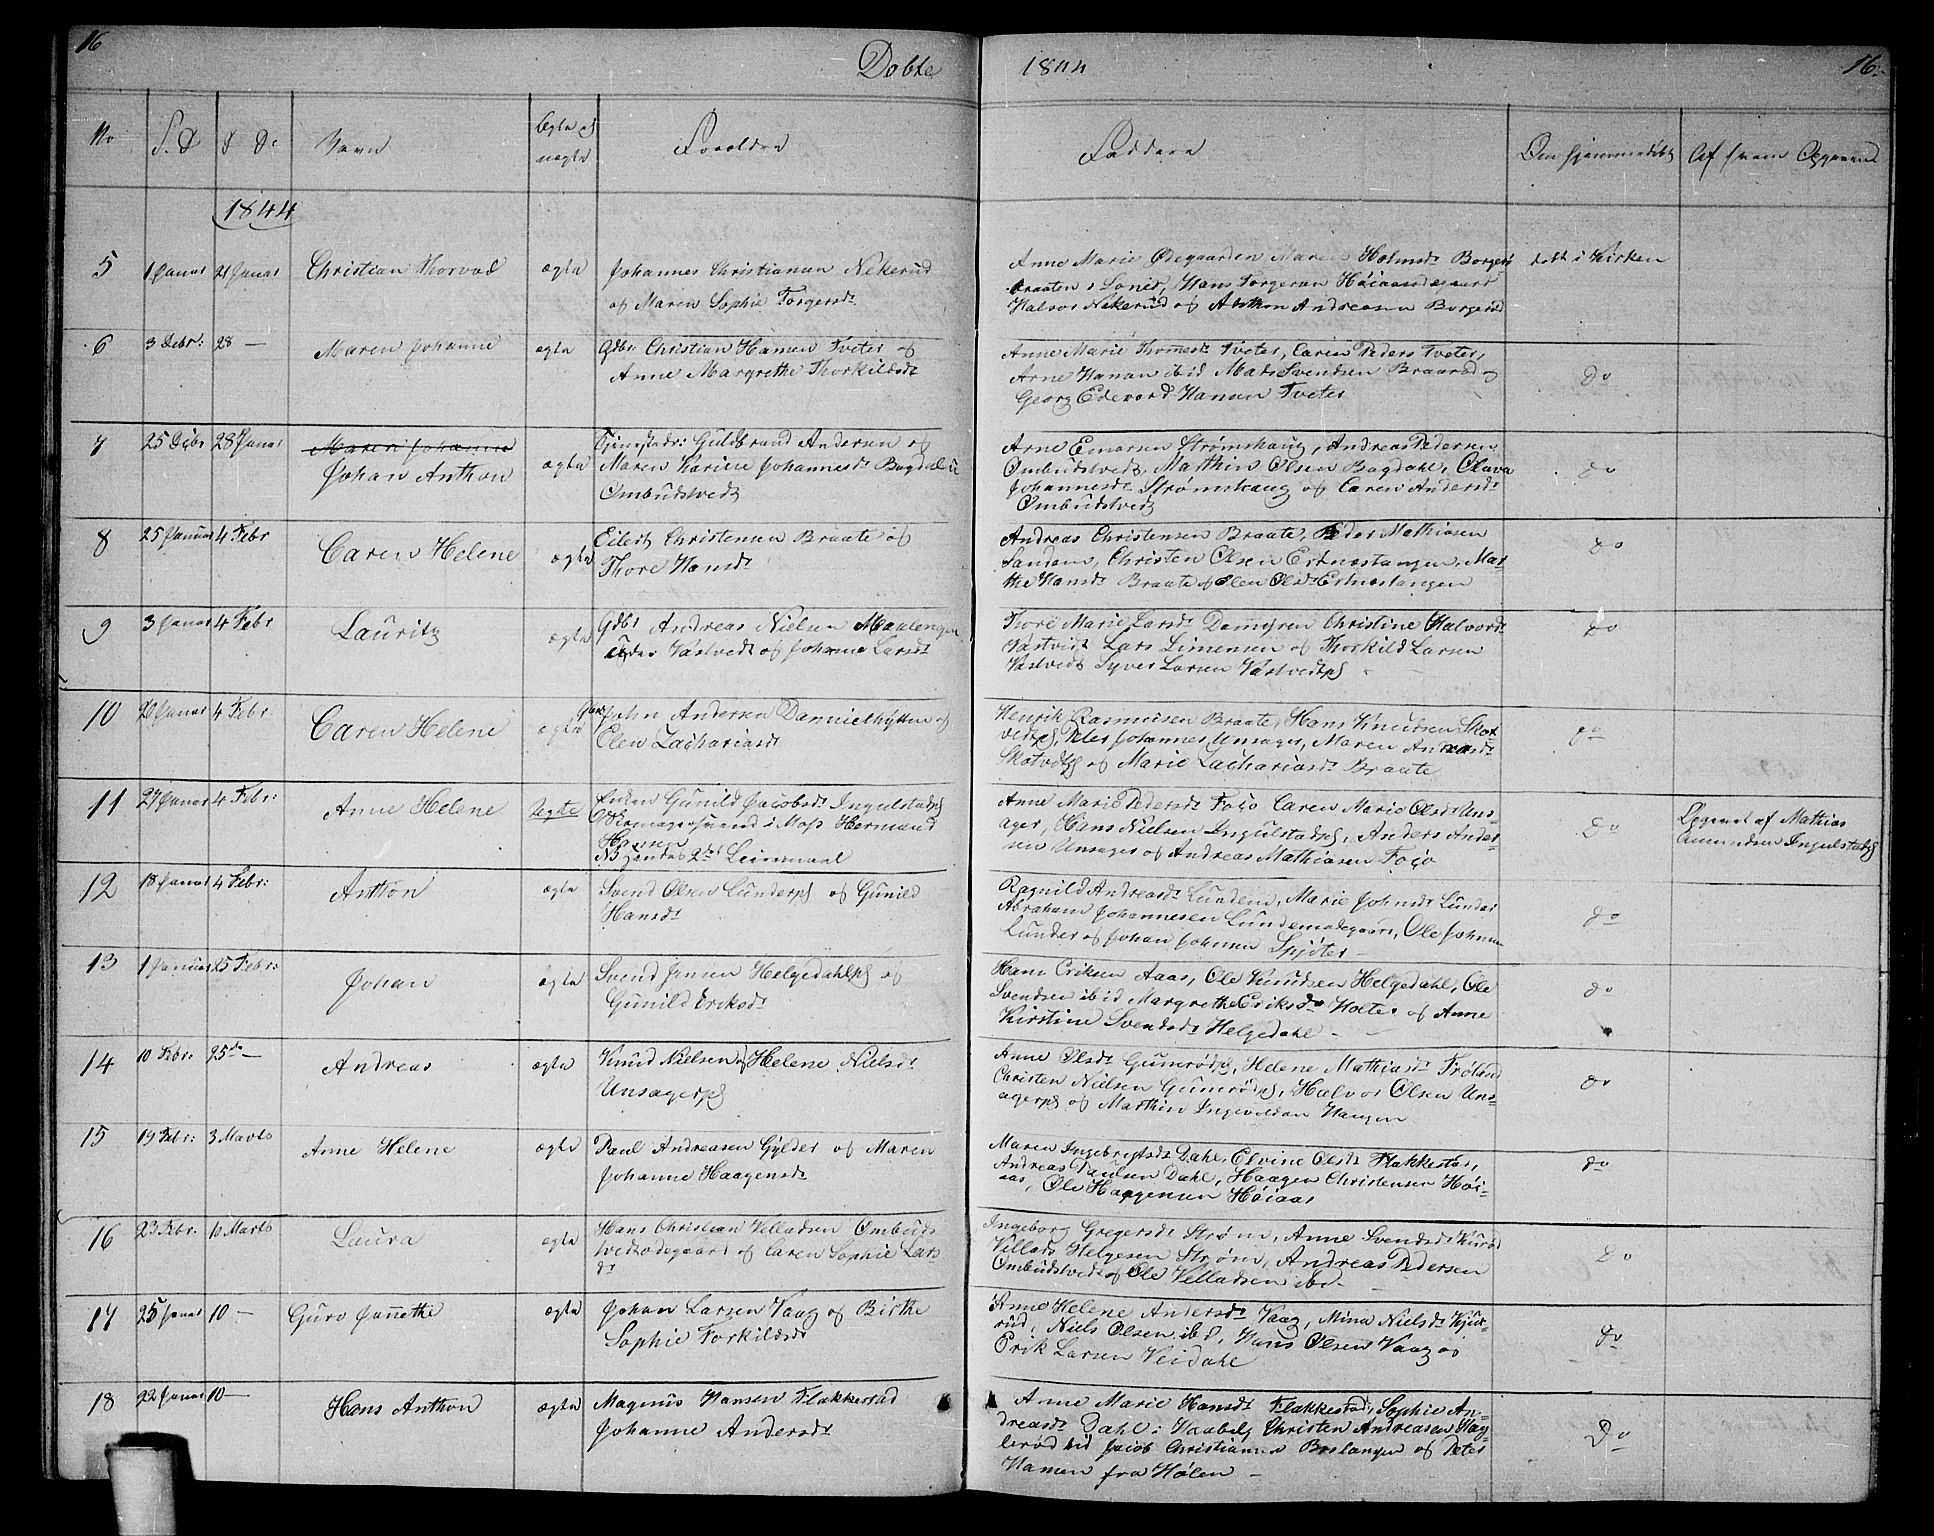 16
Døbte
1844
16
No
F. D
D. D.
Navn
Ægte og uægte
Forældre
Faddere
Om hjemmedøbt
Af hvem Opgivend
1844
5
1 Januar
21 Januar
Christian Thorvad
ægte
Johannes Christiansen Nekerud
og Maren Sophie Torgersdt
Anne Marie Ødegaarden Maren Holmsdt Borger
braaten i Soner, Hans Torgersen Høiaasødegaard
Halvor Nekerud og Anthon Andreasen Borgerud
døbt i Kirken
6
3 Debr:
28 —
Maren Johanne
ægte
Gdbr: Christian Hansen Tveter og
Anne Margrethe Thorkildsdt
Anne Marie Thomesdt Tveter, Caren Peders Tveter,
Arne Hansen ibid Mads Svendsen Braarød og
Georg Edevard Hansen Tveter
do
7
25 Debr
28 Januar
Maren Johanne
Johan Anthon
ægte
Tjenestedr: Guldbrand Andersen og
Maren Karine Johannesdt Bagdal u
Ombudstvedt
Arne Emarsen Strømshaug, Andreas Pedersen
Ombudstvedt, Mathin Olsen Bagdahl, Olava
Johannesdt Strømshaug og Caren Andersdt
Ombudstvedt
do
8
25 Januar
4 Febr
Caren Helene
ægte
Eilert Christensen Braate og
Thore Hansdt
Andreas Christensen Braate, Peder Mathiasen
Sanden, Christen Olsen Ertnestangen, Mar-
the Hansdt Braate og Elen Olsdt Ertnestangen
do
9
3 Januar
4 Febr
Lauritz
ægte
Gdbr Andreas Nielsen Maalengen
Vestvedt og Johanne Larsdt
Thore Marie Larsdt Damgren Christine Halvordt
Vastvedt Lars Simensen og Thorkild Larsen
Vastvedt Syver Larsen Vastvedtpl
do
10
26 Januar
4 Febr
Caren Helene
ægte
John Andersen Dannielhytten og
Elen Zachariasdt
Henrik Rasmusen Braate, Hans Knudsen Skot-
vedtpl, Peter Johannes Unsager, Maren Andreasdt
Skotvedtpl og Marie Zachariasdt Braate
do
11
27 Januar
4 Febr:
Anne Helene
Uegte
Enken Gunild Jacobsdt Ingulstadpl
Skomagersvend i Moss Hermand
Hansen
NB hendes 2det Leiermaal
Anne Marie Pedersdt Fosso Caren Marie Olsdt Uns-
ager, Hans Nielsen Ingulstadpl, Anders Ander-
sen Unsager og Andreas Mathiasen Fosso
do
Opgivet af Mathias
Amundsen Ingulstadpl
12
18 Januar
4 Febr:
Anthon
ægte
Svend Olsen Lunderpl og Gunild
Hansdt
Ragnild Andreasdt Lunden, Marie Johnsdt Lunder
Abraham Johannesen Lundemødegaard, Ole Johnsen
Lunder og Johan Johnsen Spjøter —
do
13
1 Januar
25 Febr:
Johan
ægte
Svend Jensen Helgedahlpl og
Gunild Eriksdt
Hans Eriksen Aaas, Ole Knudsen Helgedahl, Ole
Svendsen ibid Margrethe Eriksdt Holter og Anne
Kirstine Svendsdt Helgedahl —
do
14
10 Febr:
25de —
Andreas
ægte
Knud Nielsen og Helene Nielsdt
Unsagerpl
Anne Olsdt Gunerødpl, Helene Mathiasdt Frøland
Christen Nielsen Gunerødpl, Halvor Olsen Uns-
agerpl og Mathin Ingevoldsen Haugen
do
15
19 Febr:
3 Marts
Anne Helene
ægte
Paul Andreasen Gylder og Maren
Johanne Haagensdt
Maren Ingebregtsdt Dahl, Elvine Olsdt Flakkestad,
Andreas Paulsen Dahl, Haagen Christensen Høi-
aas, Ole Haagensen Høiaas
do
16
23 Febr:
10 Marts
Laura
ægte
Hans Christian Velladsen Ombuds
tvedtødegaard og Caren Sophie Lars
dt
Ingeborg Gregersdt Strøm, Anne Svendsdt Kurød
Villads Helgesen Strøm, Andreas Pedersen
Ombudstvedt og Ole Velladsen ibd —
do
17
25 Januar
10 —
Guro Janethe
ægte
Johan Larsen Vaag og Birthe
Sophie Torkildsdt
Anne Helene Andersdt Vaag, Mina Nielsdt Kjus-
rud, Niels Olsen ibd, Hans Olsen Vaag og
Erik Larsen Veidahl
do
18
22 Januar
10 —
Hans Anthon
ægte
Magenus Hansen Flakkestad
Johanne Andersdt
Anne Marie Hansdt Flakkestad, Sophie An-
dreasdt Dahl i Vaabelg Christen Andreasen Hag-
lerød ibd Jacob Christiansen Boslangen og Peter
Hansen fra Hølen —
Do